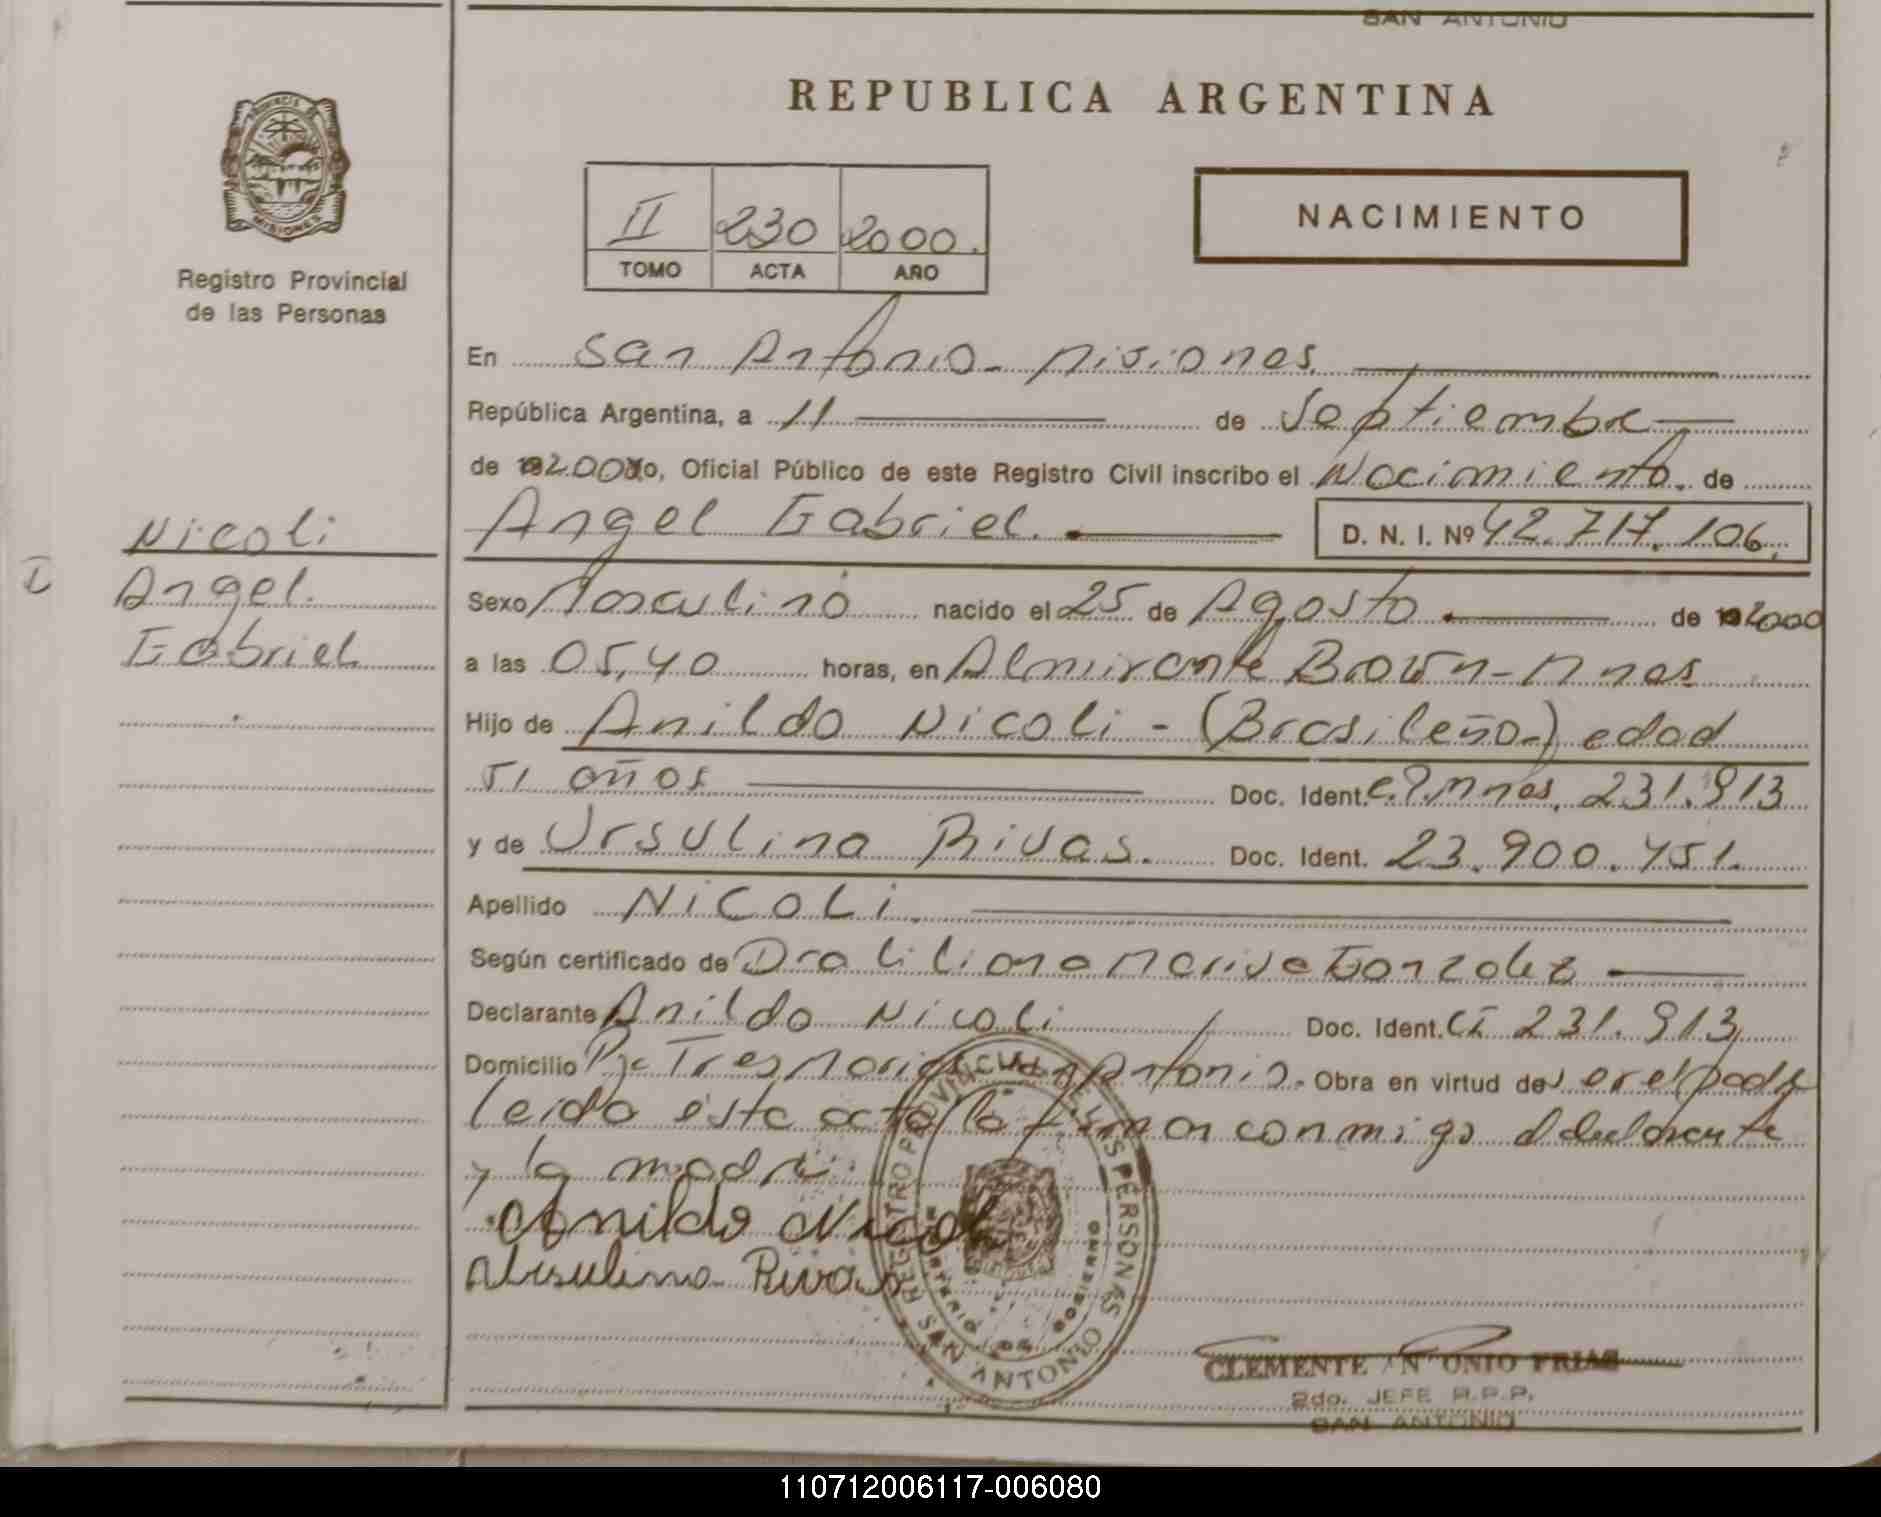 SAN ANTONIO
REPUBLICA ARGENTINA
PROVINCIA DE MISIONES
Registro Provincial
de las Personas
II 230 2000.
TOMO ACTA AÑO
NACIMIENTO
En San Antonio - Misiones.
República Argentina, a 11 de Septiembre
de 2000 Yo, Oficial Público de este Registro Civil inscribo el Nacimiento. de
Angel Gabriel. D. N. I. Nº 42.717.106.
Nicoli
Angel.
Gabriel
Sexo Masculino nacido el 25 de Agosto de 2000
a las 05,40 horas, en Almirante Brown - Mnes
Hijo de Anildo Nicoli - (Brasileño.) edad
51 años Doc. Ident. C.P.Mnes. 231.913
y de Ursulina Rivas. Doc. Ident. 23.900.451.
Apellido Nicoli.
Según certificado de Dra Liliana Gonzalez
Declarante Anildo Nicoli Doc. Ident. CI 231.913
Domicilio Pje Tres Marias San Antonio. Obra en virtud de ser el padre
Leida esta acta la firman conmigo el declarante
y la madre.
Anildo Nicoli
Ursulina Rivas
REGISTRO PROVINCIAL DE LAS PERSONAS
SAN ANTONIO
MINISTERIO DE GOBIERNO
CLEMENTE ANTONIO FRIAS
2do. JEFE R.P.P.
SAN ANTONIO
110712006117-006080